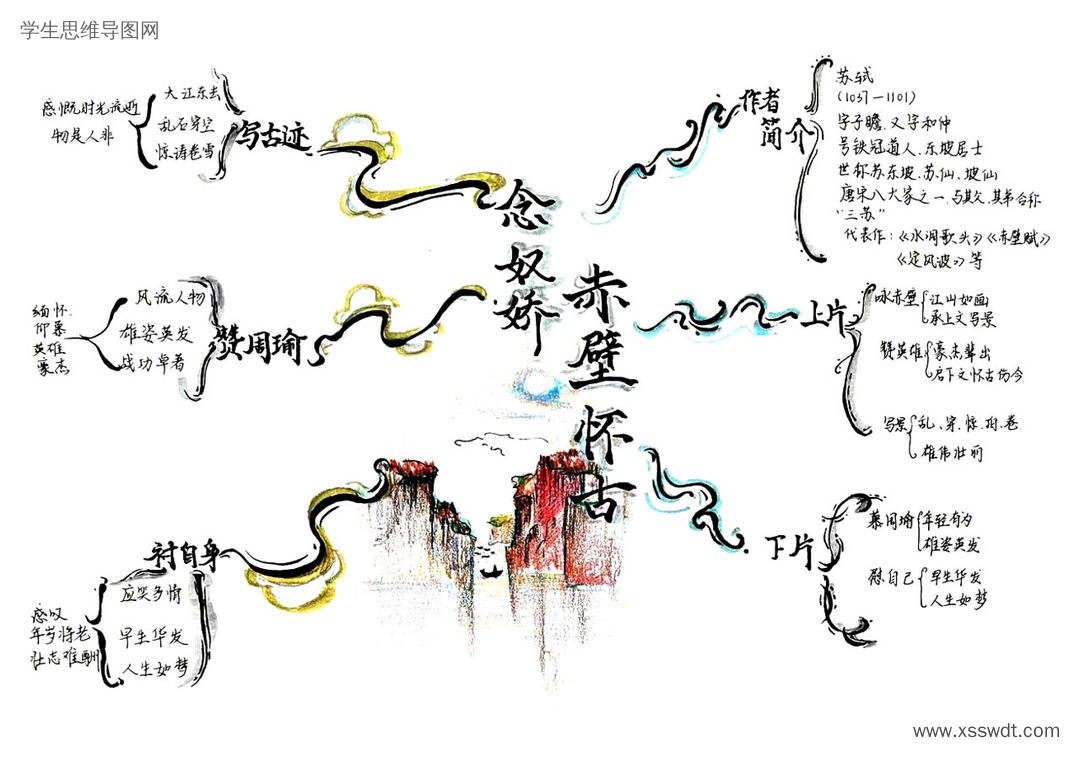 学生思维导图网
念奴娇
赤壁怀古
写古迹
大江东去
乱石穿空
惊涛卷雪
感慨时光流逝
物是人非
赞周瑜
风流人物
雄姿英发
战功卓著
缅怀.
仰慕
英雄
豪杰
衬自身
应笑多情
早生华发
人生如梦
感叹
年岁将老
壮志难酬
作者
简介
苏轼
(1037—1101)
字子瞻、又字和仲
号铁冠道人、东坡居士
世称苏东坡、苏仙、坡仙
唐宋八大家之一.与其父、其弟合称
“三苏”
代表作：《水调歌头》《赤壁赋》
《定风波》等
上片
咏赤壁
江山如画
承上文写景
赞英雄
豪杰辈出
启下文怀古伤今
写景
乱、穿、惊、拍、卷
雄伟壮丽
下片
慕周瑜
年轻有为
雄姿英发
自己
早生华发
人生如梦
www.xsswdt.com